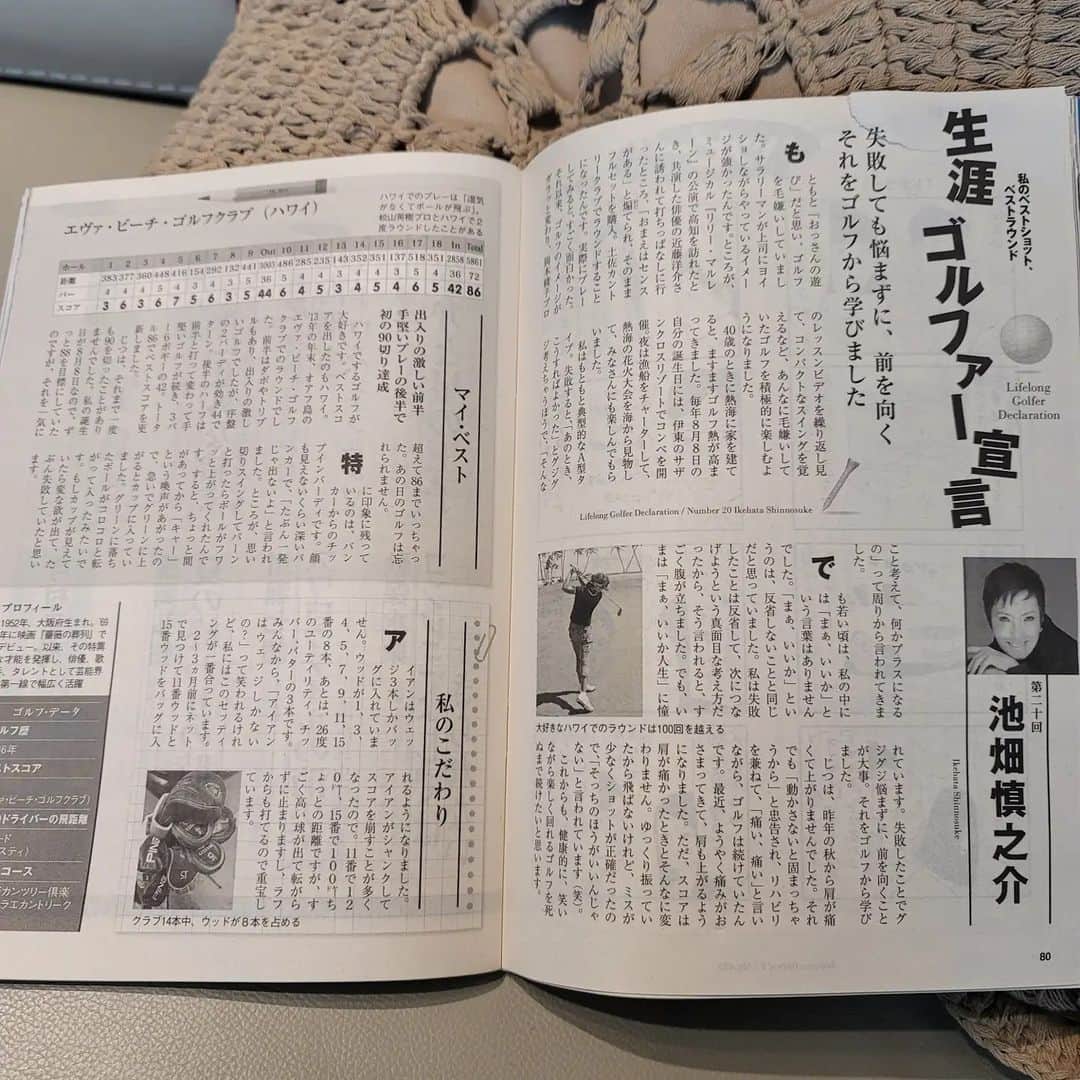 生涯ゴルファー宣言
私のベストショット、
ベストラウンド
Lifelong
Golfer
Declaration
失敗しても悩まずに、前を向く
それをゴルフから学びました
もともと「おっさんの遊
び」だと思い、ゴルフ
を毛嫌いしていまし
た。サラリーマンが上司にヨイ
ショしながらやっているイメー
ジが強かったんです。ところが、
ミュージカル『リリー・マルレ
ーン』の公演で高知を訪れたと
き、共演した俳優の近藤洋介さ
んに誘われて打ちっぱなしに行
ったところ、「おまえはセンス
がある」と煽てられ、そのまま
フルセットを購入。土佐カント
リークラブでラウンドすること
になったんです。実際にプレー
してみると、すごく面白かった。
それ以来、ゴルフのイメージが
のレッスンビデオを繰り返し見
て、コンパクトなスイングを覚
えるなど、あんなに毛嫌いして
いたゴルフを積極的に楽しむよ
うになりました。
40歳のときに熱海に家を建て
ると、ますますゴルフ熱が高ま
ってきました。毎年8月8日の
自分の誕生日には、伊東のサザ
ンクロスリゾートでコンペを開
催。夜は漁船をチャーターして、
熱海の花火大会を海から見物し
て、みなさんにも楽しんでもら
いました。
私はもともと典型的なA型タ
イプ。失敗すると、「あのとき、
こうすればよかった」とグジグ
ジ考えちゃうほうで、「そんな
Lifelong Golfer Declaration / Number 20 Ikehata Shinnosuke
こと考えて、何かプラスになる
の」って周りから言われてきま
した。
でも若い頃は、私の中に
は「まぁ、いいか」と
いう言葉はありません
でした。「まぁ、いいか」とい
うのは、反省しないことと同じ
だと思っていました。私は失敗
したことは反省して、次につな
げようという真面目な考え方だ
ったから、そう言われると、す
ごく腹が立ちました。でも、い
まは「まぁ、いいか人生」に憧
れています。失敗したことでグ
ジグジ悩まずに、前を向くこと
が大事。それをゴルフから学び
ました。
じつは、昨年の秋から肩が痛
くて上がりませんでした。それ
でも「動かさないと固まっちゃ
うから」と忠告され、リハビリ
を兼ねて、「痛い、痛い」と言い
ながら、ゴルフは続けていたん
です。最近、ようやく痛みがお
さまってきて、肩も上がるよう
になりました。ただ、スコアは
肩が痛かったときとそんなに変
わりません。ゆっくり振ってい
たから飛ばないけれど、ミスが
少なくショットが正確だったの
で、「そっちのほうがいいんじゃ
ない」と言われています（笑）。
これからも、健康的に、笑い
ながら楽しく回れるゴルフを死
ぬまで続けたいと思います。
第二十回
池畑慎之介
Ikehata Shinnosuke
大好きなハワイでのラウンドは100回を越える
80
ハワイでのプレーは「湿気
がなくてボールが飛ぶ」。
松山英樹プロとハワイで2
度ラウンドしたことがある
エヴァ・ビーチ・ゴルフクラブ（ハワイ）
ホール 1 2 3 4 5 6 7 8 9 Out 10 11 12 13 14 15 16 17 18 In Total
距離 383 377 360 448 416 154 292 132 441 3003 486 285 235 143 352 351 137 351 518 2858 5861
パー
スコア 3 6 3 6 7 5 6 3 5 44 6 4 5 2 4 7 3 5 6 42 86
マイ・ベスト
出入りの激しい前半
手堅いプレーの後半で
初の90切り達成
ハワイでするゴルフが
大好きです。ベストスコ
アを出したのもハワイ。
'13年の年末、オアフ島の
エヴァ・ビーチ・ゴルフ
クラブでのラウンドでし
た。前半はダボやトリプ
ルもあり、出入りの激し
いゴルフでしたが、序盤
の2バーディが効き44で
ターン。後半のハーフは
前半と打って変わって手
堅いゴルフが続き、3パ
ー6ボギーの42。トータ
ル86でベストスコアを更
新しました。
じつは、それまで一度
も90を切ったことがあり
ませんでした。私の誕生
日が8月8日なので、ず
っと88を目標にしていた
のですが、それを一気に
超えて86までいっちゃっ
た。あの日のゴルフは忘
れられません。
特に印象に残って
いるのは、バン
カーからのチッ
プインバーディです。顔
も見えないくらい深いバ
ンカーで、「たぶん一発
じゃ出ないよ」と言われ
ました。ところが、思い
切りスイングしてバーン
と打ったらボールがフワ
ッと上がってくれたんで
す。すると、ちょっと間
があってから「キャー」
という喚声があがったの
で、急いでグリーンに上
がるとカップに入ってい
ました。グリーンに落ち
たボールがコロコロと転
がって入ったみたいで
す。もしカップが見えて
いたら変な欲が出て、た
ぶん失敗していたと思い
ます。
私のこだわり
アイアンはウェッ
ジ3本しかバッ
グに入れていま
せん。ウッドが1、3、
4、5、7、9、11、15
番の8本、あとは、26度
のユーティリティ、チッ
パー、パターの3本です。
みんなから、「アイアン
はウェッジしかない
の？」って笑われるけれ
ど、私にはこのセッティ
ングが一番合っています。
2〜3ヵ月前にネット
で見つけて11番ウッドと
15番ウッドをバッグに入
れるようになりました。
アイアンがシャンクして
スコアを崩すことが多く
なったので。11番で12
0㍎、15番で100㍎ち
ょっとの距離ですが、す
ごく高い球が出て転がら
ずに止まりますし、ラフ
からも打てるので重宝し
ています。
クラブ14本中、ウッドが8本を占める
プロフィール
1952年、大阪府生まれ。'69
年に映画『薔薇の葬列』で
デビュー。以来、その特異
な才能を発揮し、俳優、歌
手、タレントとして芸能界
第一線で幅広く活躍
ゴルフ・データ
ルフ歴
ストスコア
・ビーチ・ゴルフクラブ）
ドライバーの飛距離
コース